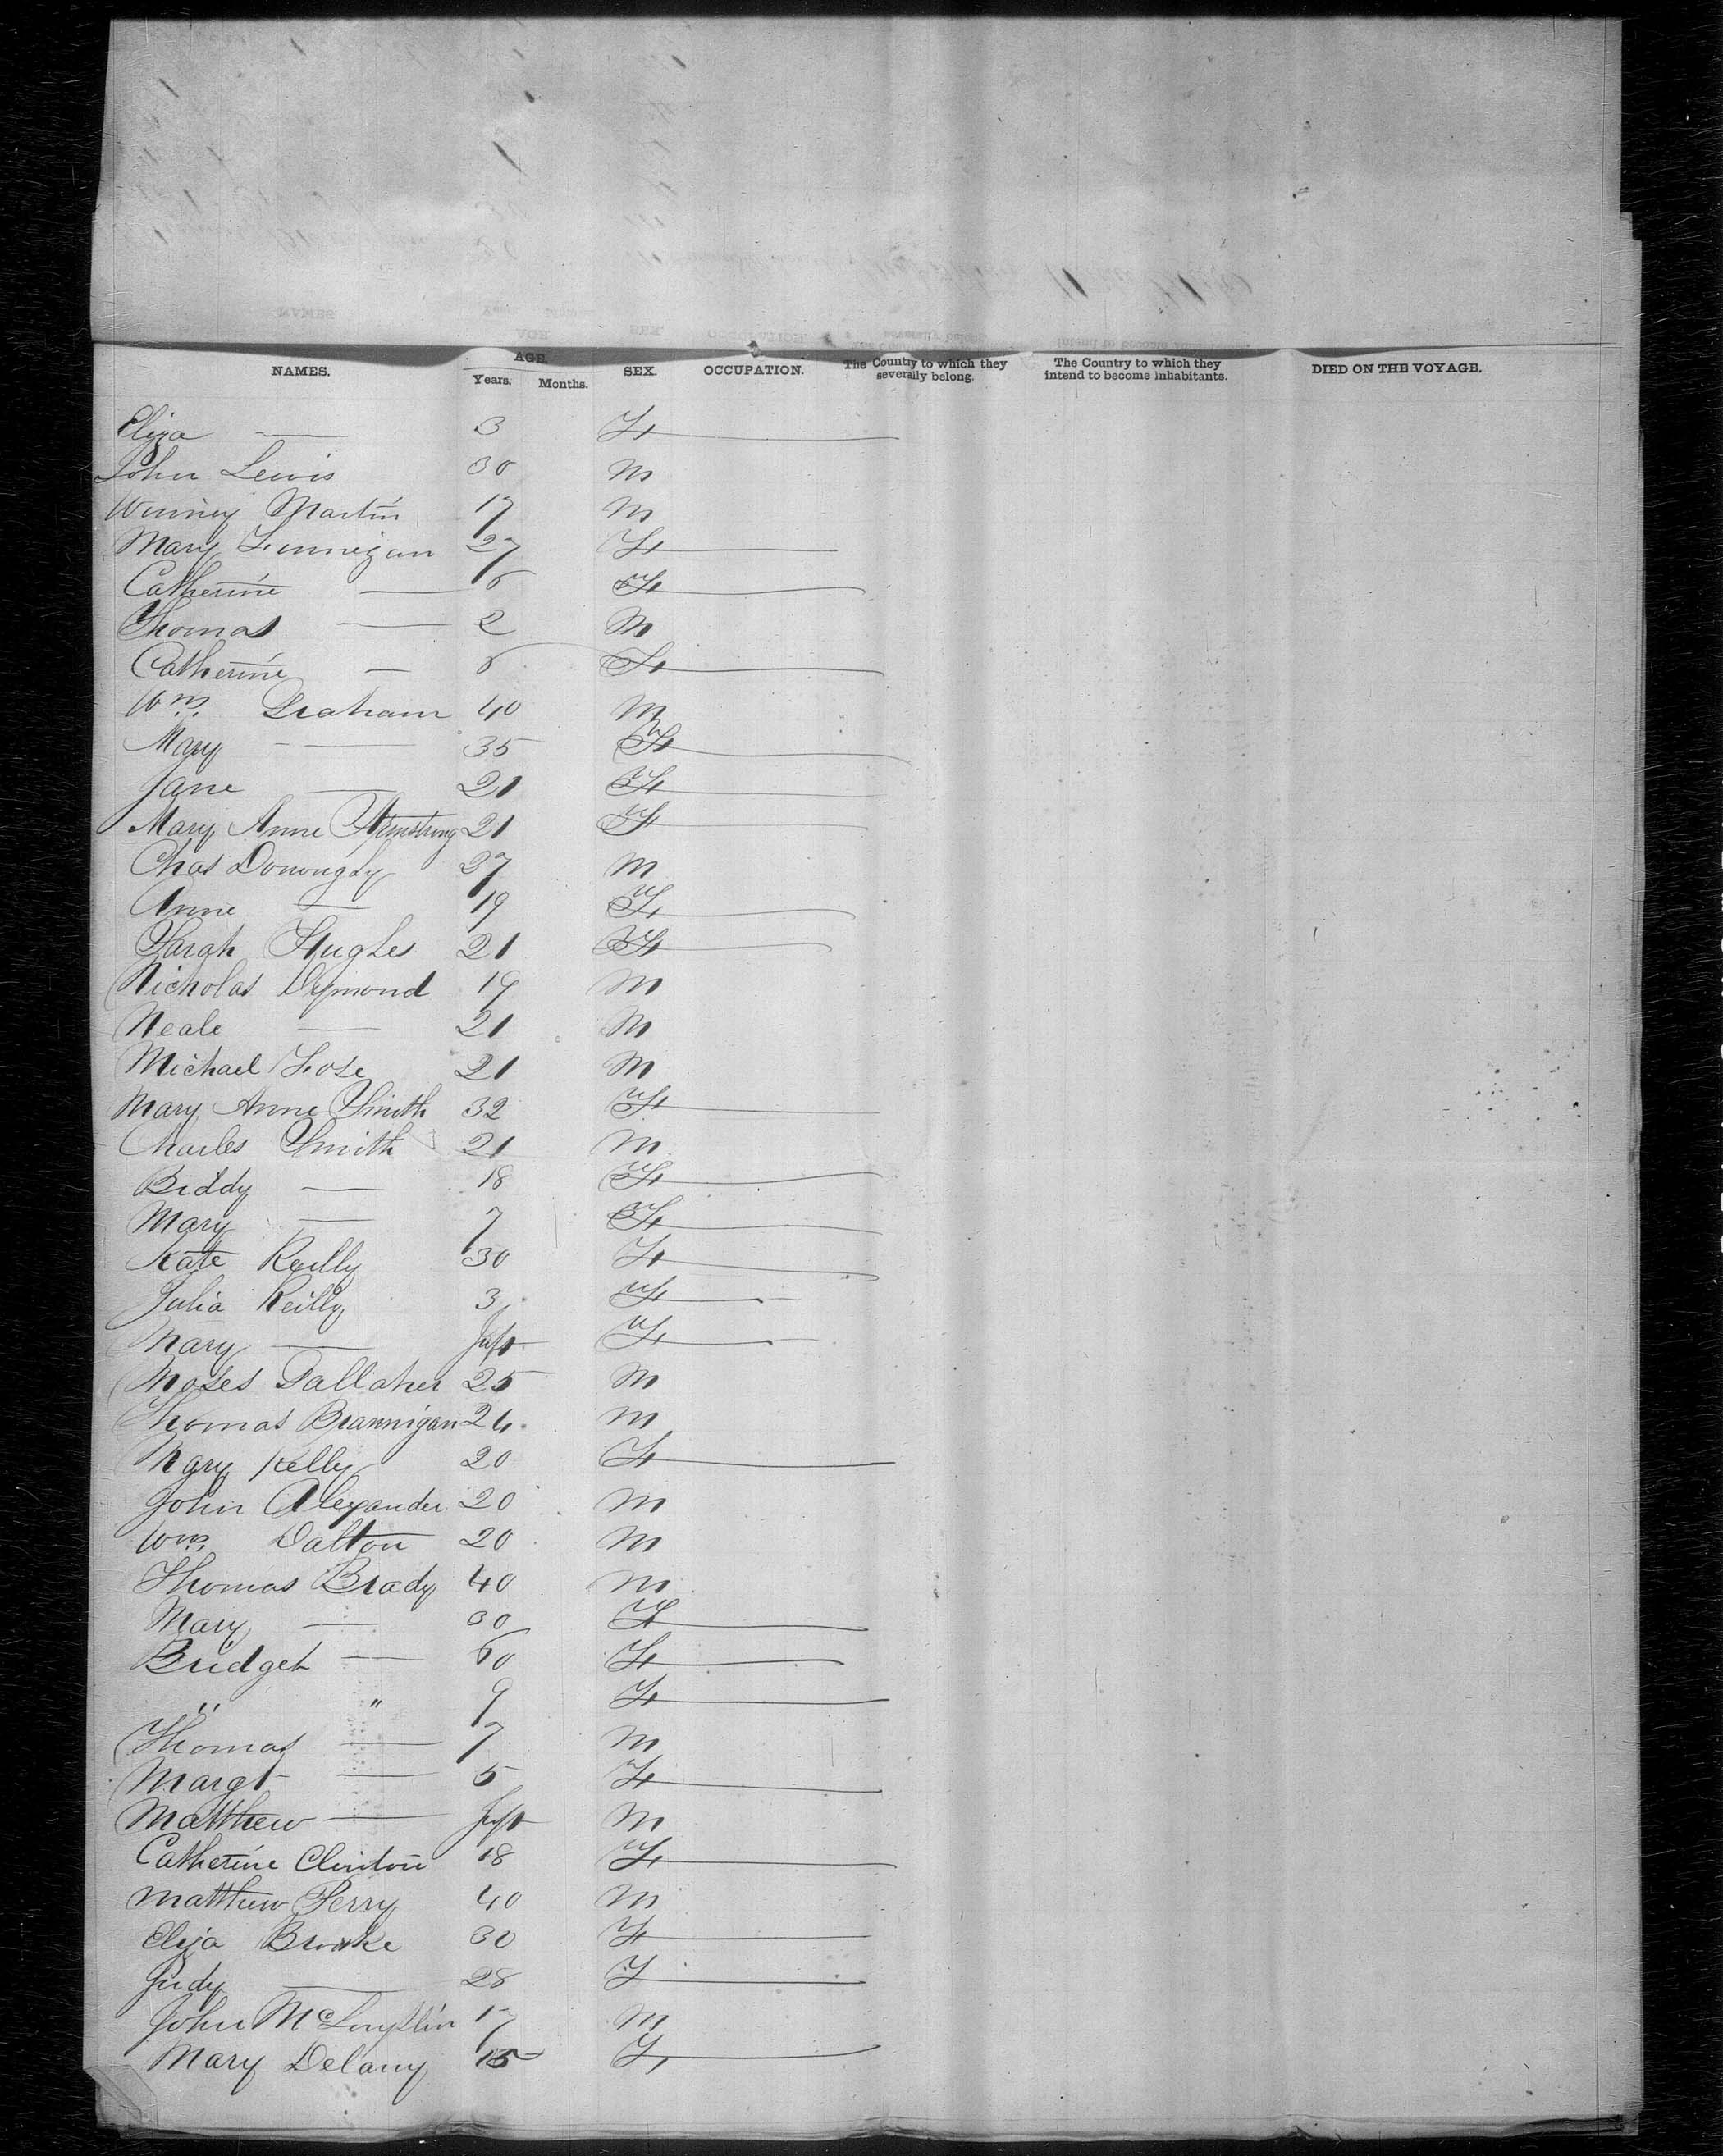 NAMES. AGE. Years. Months. SEX. OCCUPATION. The Country to which they severally belong. The Country to which they intend to become inhabitants. DIED ON THE VOYAGE.
Eliza — 3 F
John Lewis 30 M
Winney Martin 17 M
Mary Finnigan 27 F
Catherine — 6 F
Thomas — 2 M
Catherine — 6 F
Wm. Graham 40 M
Mary — 35 F
Jane — 21 F
Mary Anne Armstrong 21 F
Chas 27 M
Anne — 19 F
Sarah Hughes 21 F
Nicholas Dymond 19 M
Neale — 21 M
Michael 21 M
Mary Anne Smith 32 F
Charles Smith 21 M
Biddy — 18 F
Mary — 7 F
Kate Reilly 30 F
Julia Reilly 3 F
Mary — Inft F
Moses Gallaher 25 M
Thomas Brannigan 24 M
Mary Kelly 20 F
John Alexander 20 M
Wm. Dalton 20 M
Thomas Brady 40 M
Mary — 30 F
Bridget — 60 F
" " 9 F
Thomas — 7 M
Margt — 5 F
Matthew — Inft M
Catherine Clinton 18 F
Matthew Perry 40 M
Eliza 30 F
Judy — 28 F
John 17 M
Mary Delany 15 F